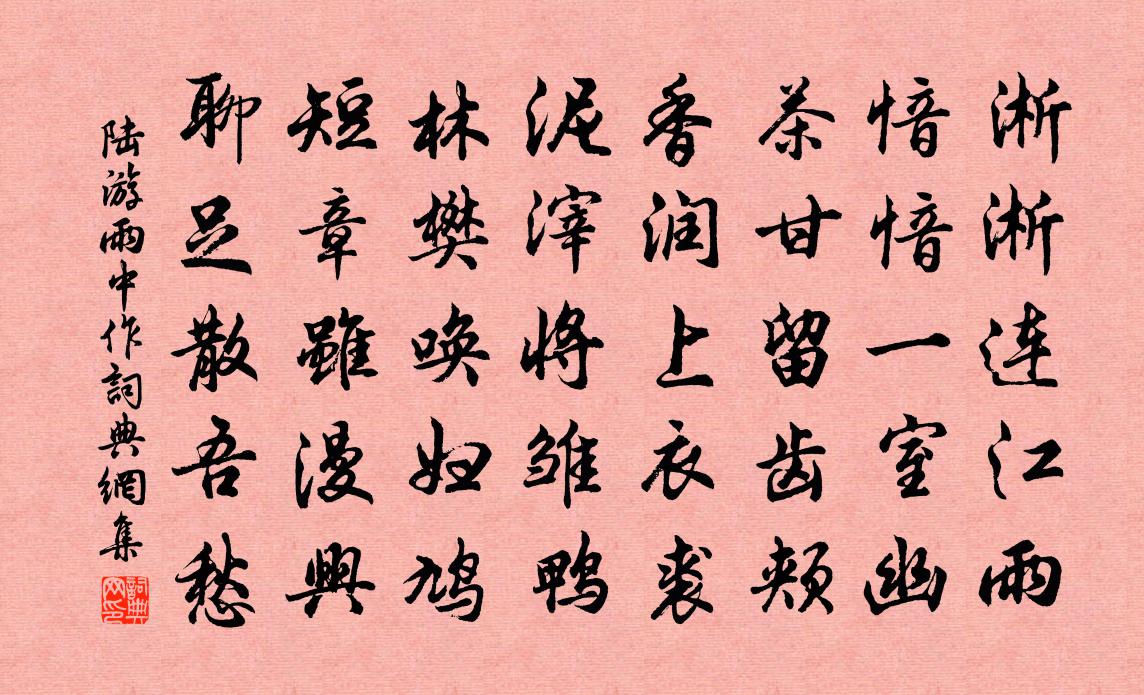 淅淅连江雨
愔愔一室幽
茶甘留齿颊
香润上衣裘
泥滓将雏鸭
林樊唤妇鸠
短章雖漫興
聊足散吾愁
陆游雨中作詞典網集
詞典网印